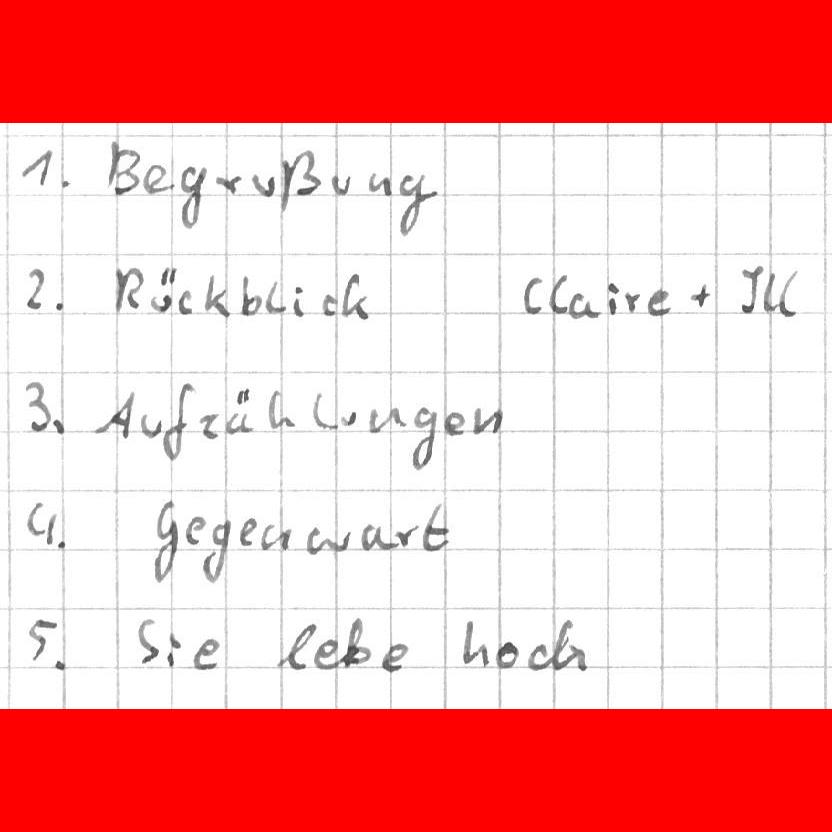 1. Begrußung
2. Rückblick Claire + Ill
3. Aufzählungen
4. Gegenwart
5. Sie lebe hoch